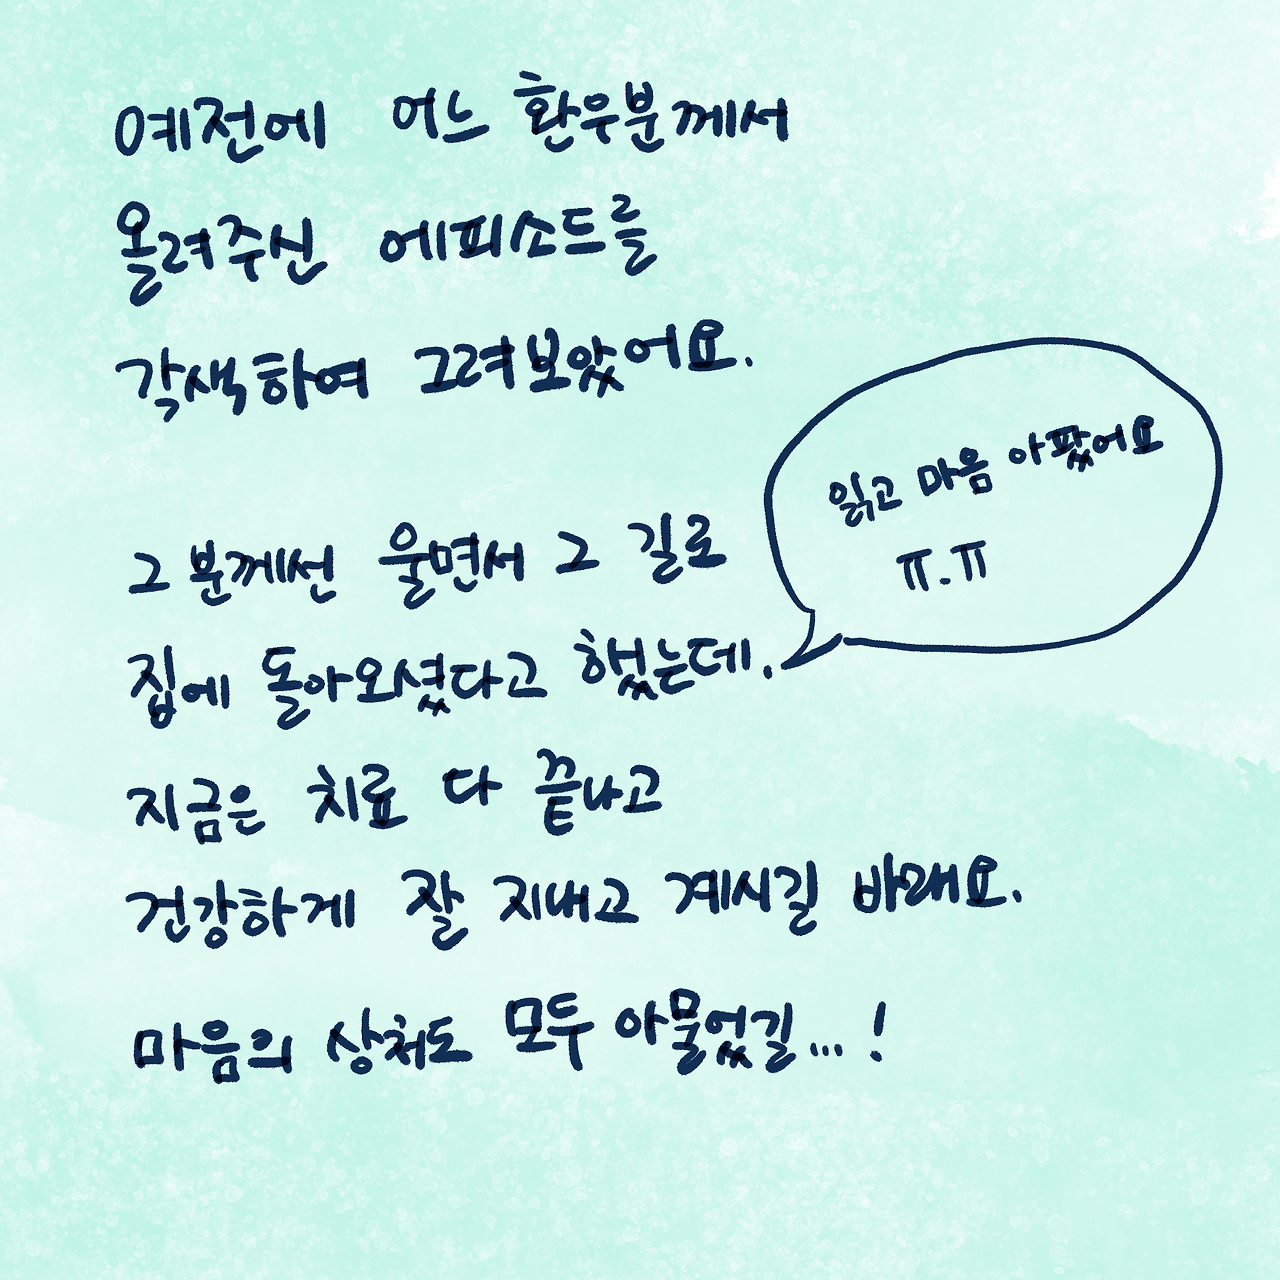 예전에 어느 환우분께서
올려주신 에피소드를
각색하여 그려보았어요.
그 분께선 울면서 그 길로
집에 돌아오셨다고 했는데.
읽고 마음 아팠어요
ㅠ.ㅠ
지금은 치료 다 끝나고
건강하게 잘 지내고 계시길 바래요.
마음의 상처도 모두 아물었길...!